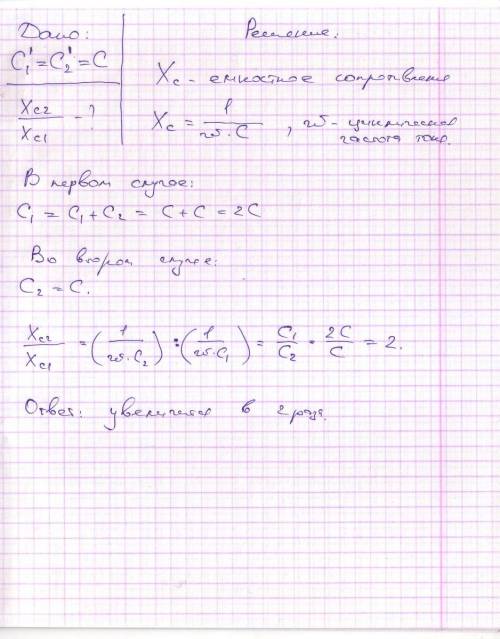 Дано:
C₁' = C₂' = C
Xc2 / Xc1 - ?
Решение:
Xc - емкостное сопротивление
Xc = 1 / (ω·C), ω - циклическая
частота тока.
В первом случае:
C₁ = C₁ + C₂ = C + C = 2C
Во втором случае:
C₂ = C.
Xc2 / Xc1 = (1 / (ω·C₂)) : (1 / (ω·C₁)) = C₁ / C₂ = 2C / C = 2.
Ответ: увеличится в 2 раза.